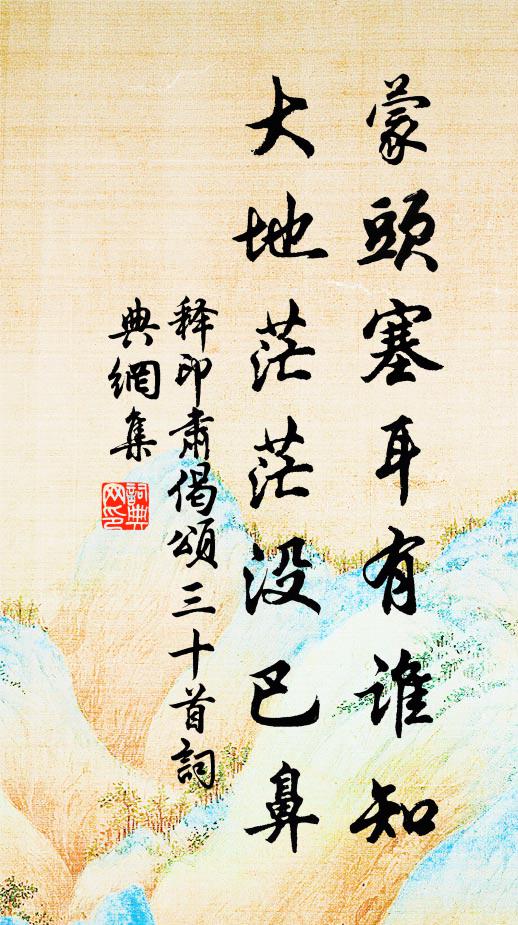 蒙頭塞耳有誰知
大地茫茫没巴鼻
释印肃偈頌三十首詞
典網集
詞典
网印